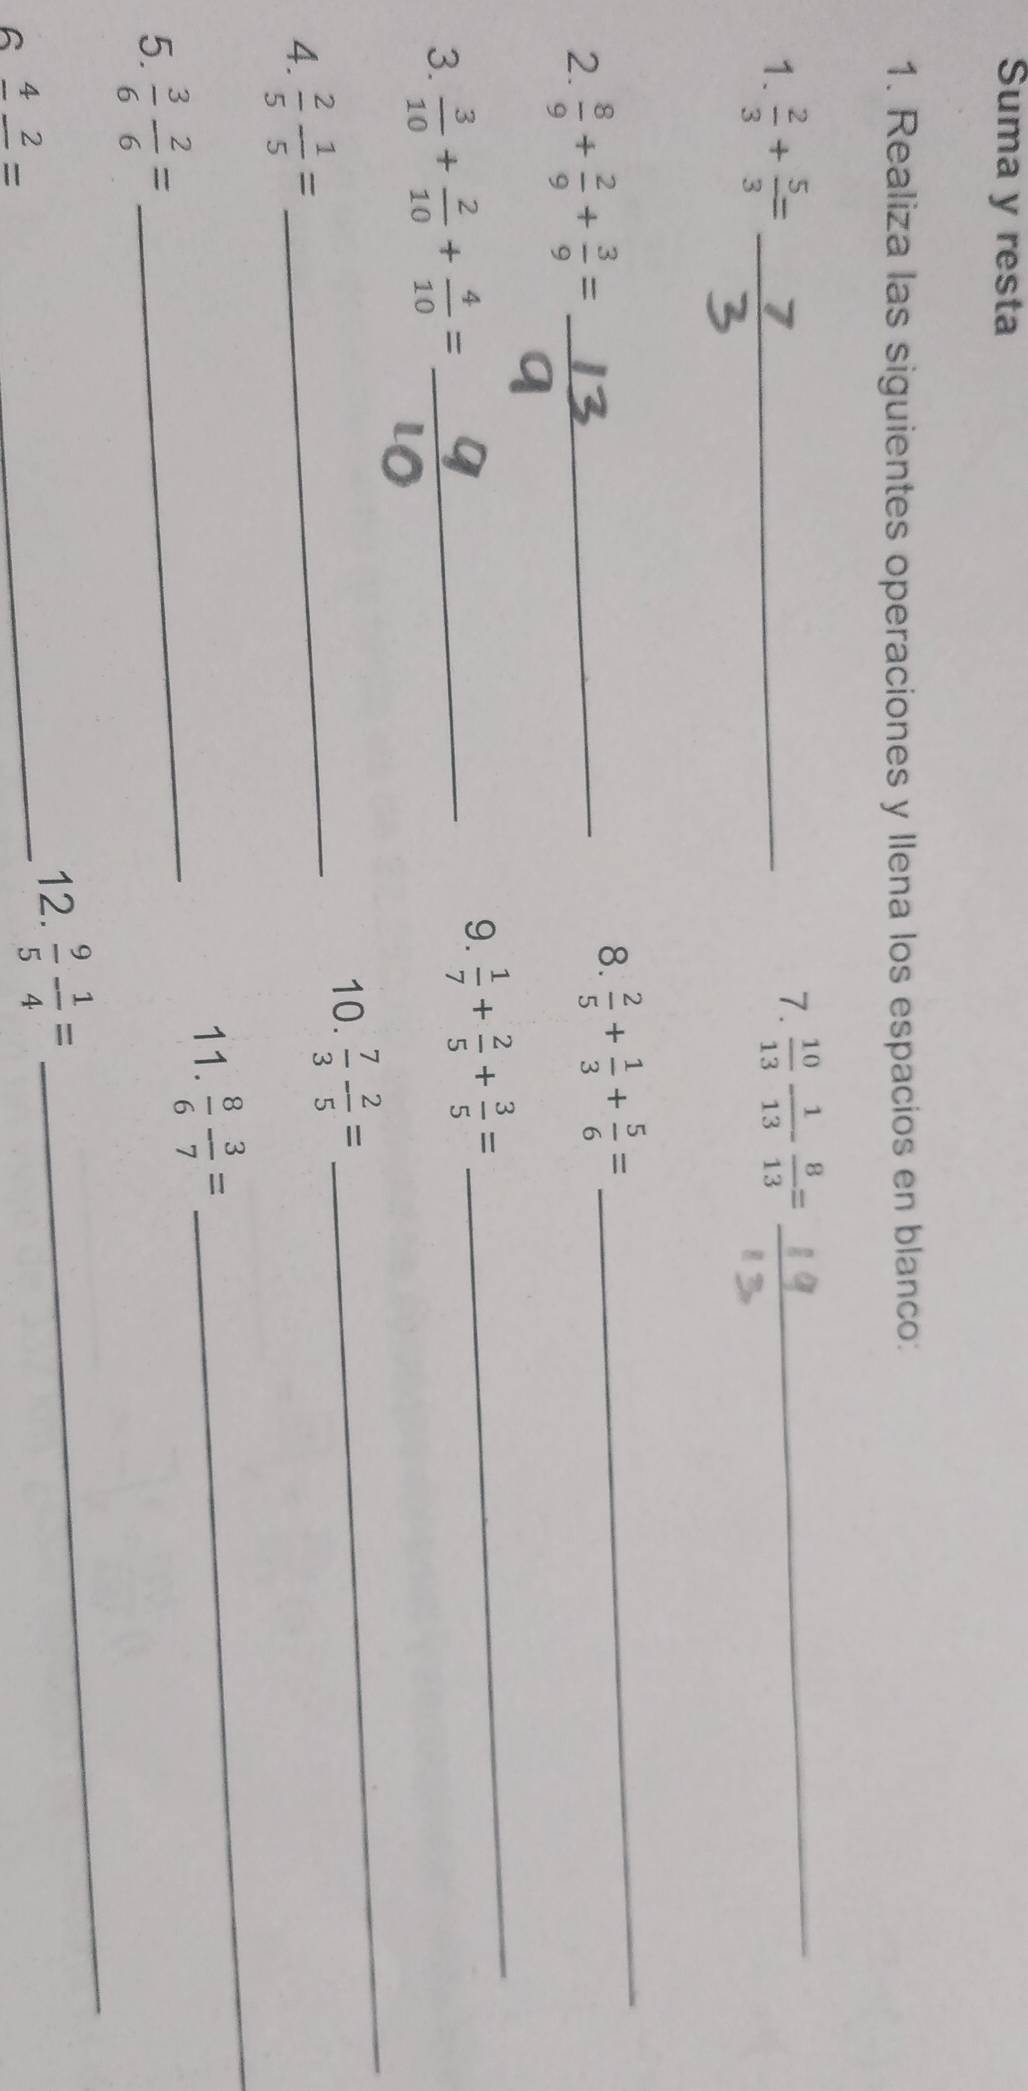 Suma y resta
1. Realiza las siguientes operaciones y llena los espacios en blanco:
1. 2/3 + 5/3 = 7/3
2. 8/9 + 2/9 + 3/9 = 13/9
3. 3/10 + 2/10 + 4/10 = 9/10
4. 2/5 - 1/5 =
5. 3/6 - 2/6 =
6 4 - 2 =
7. 10/13 - 1/13 - 8/13 = 19/13
8. 2/5 + 1/3 + 5/6 =
9. 1/7 + 2/5 + 3/5 =
10. 7/3 - 2/5 =
11. 8/6 - 3/7 =
12. 9/5 - 1/4 =